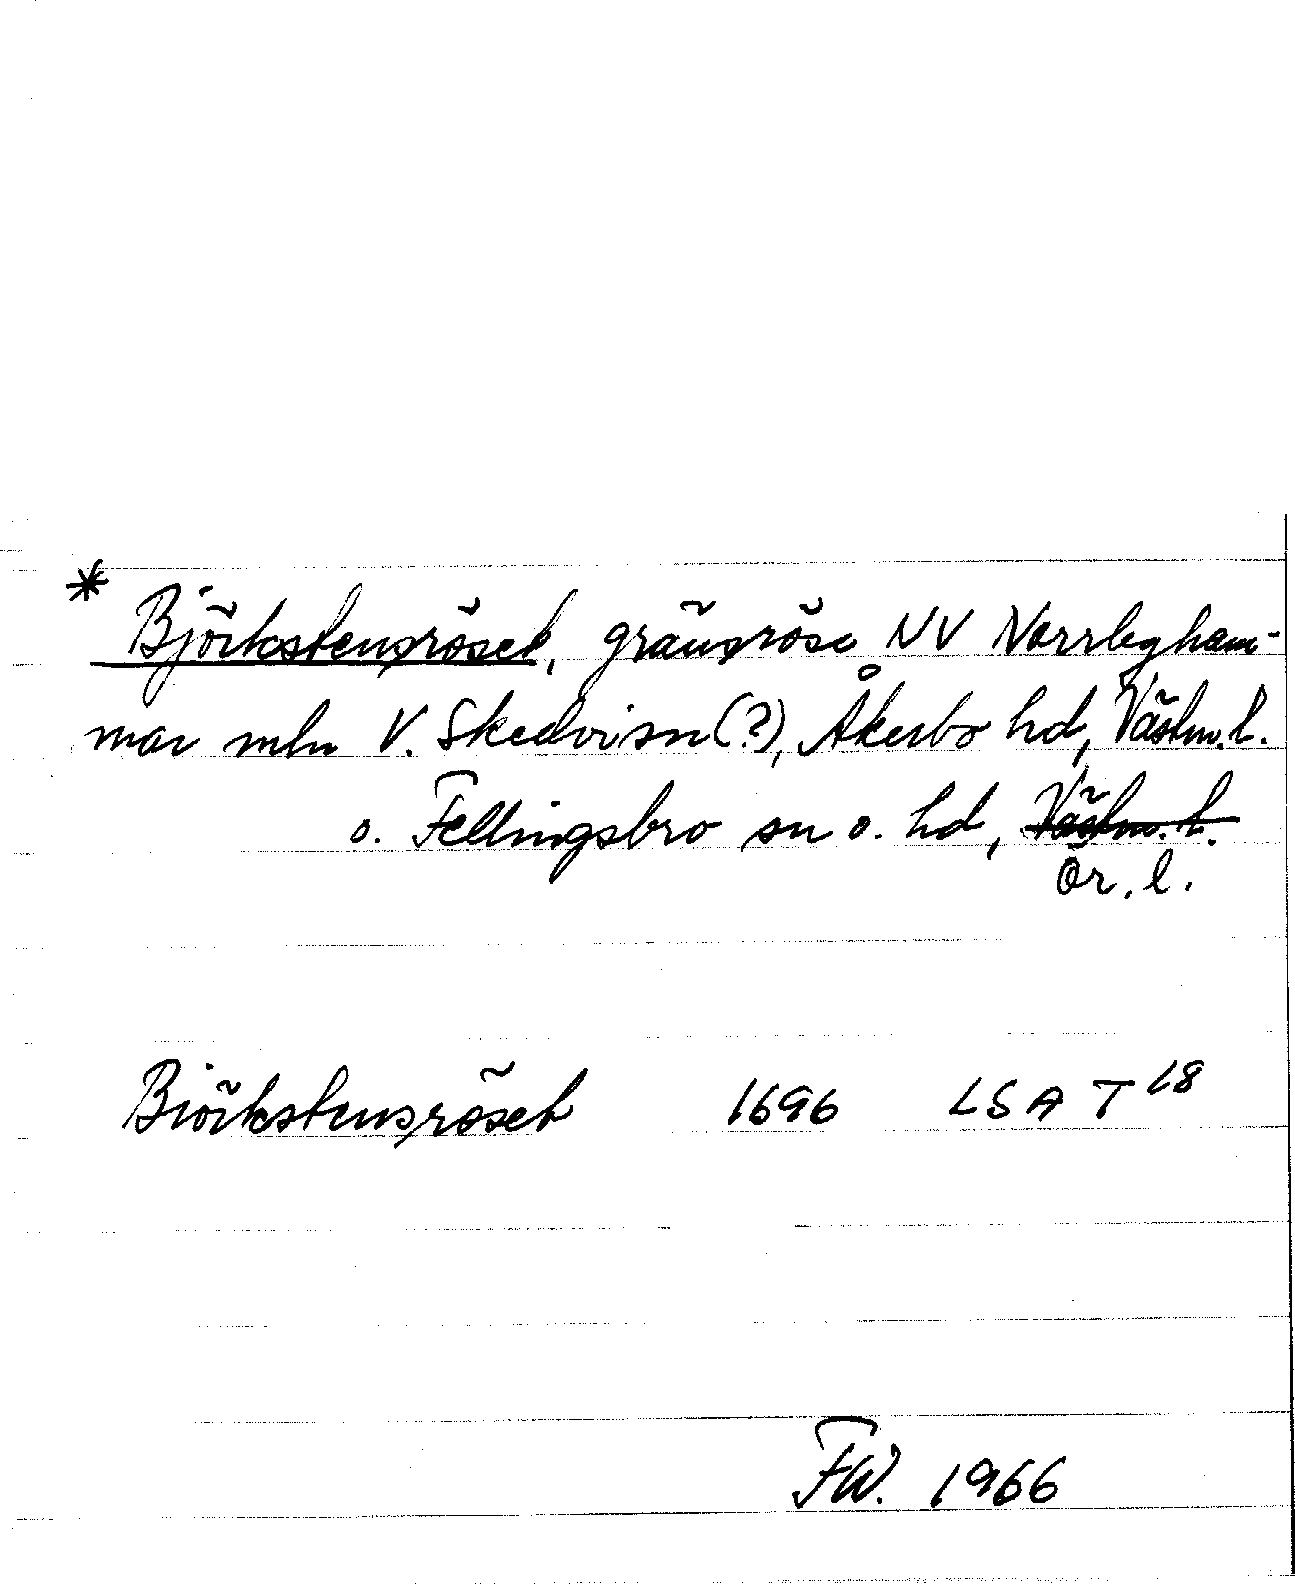 *
Björkstensröset, gränsröse NV Norrbyham-
mar mln V. Skedvi sn (?), Åkerbo hd, Västm. l.
o. Fellingsbro sn o. hd, Västm. l.
Ör. l.
Biörkstensröset 1696 LSA T 18
FW. 1966